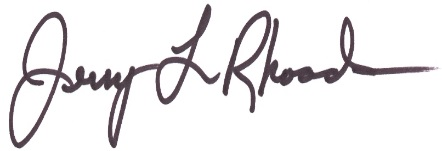 Jerry L Rhoads